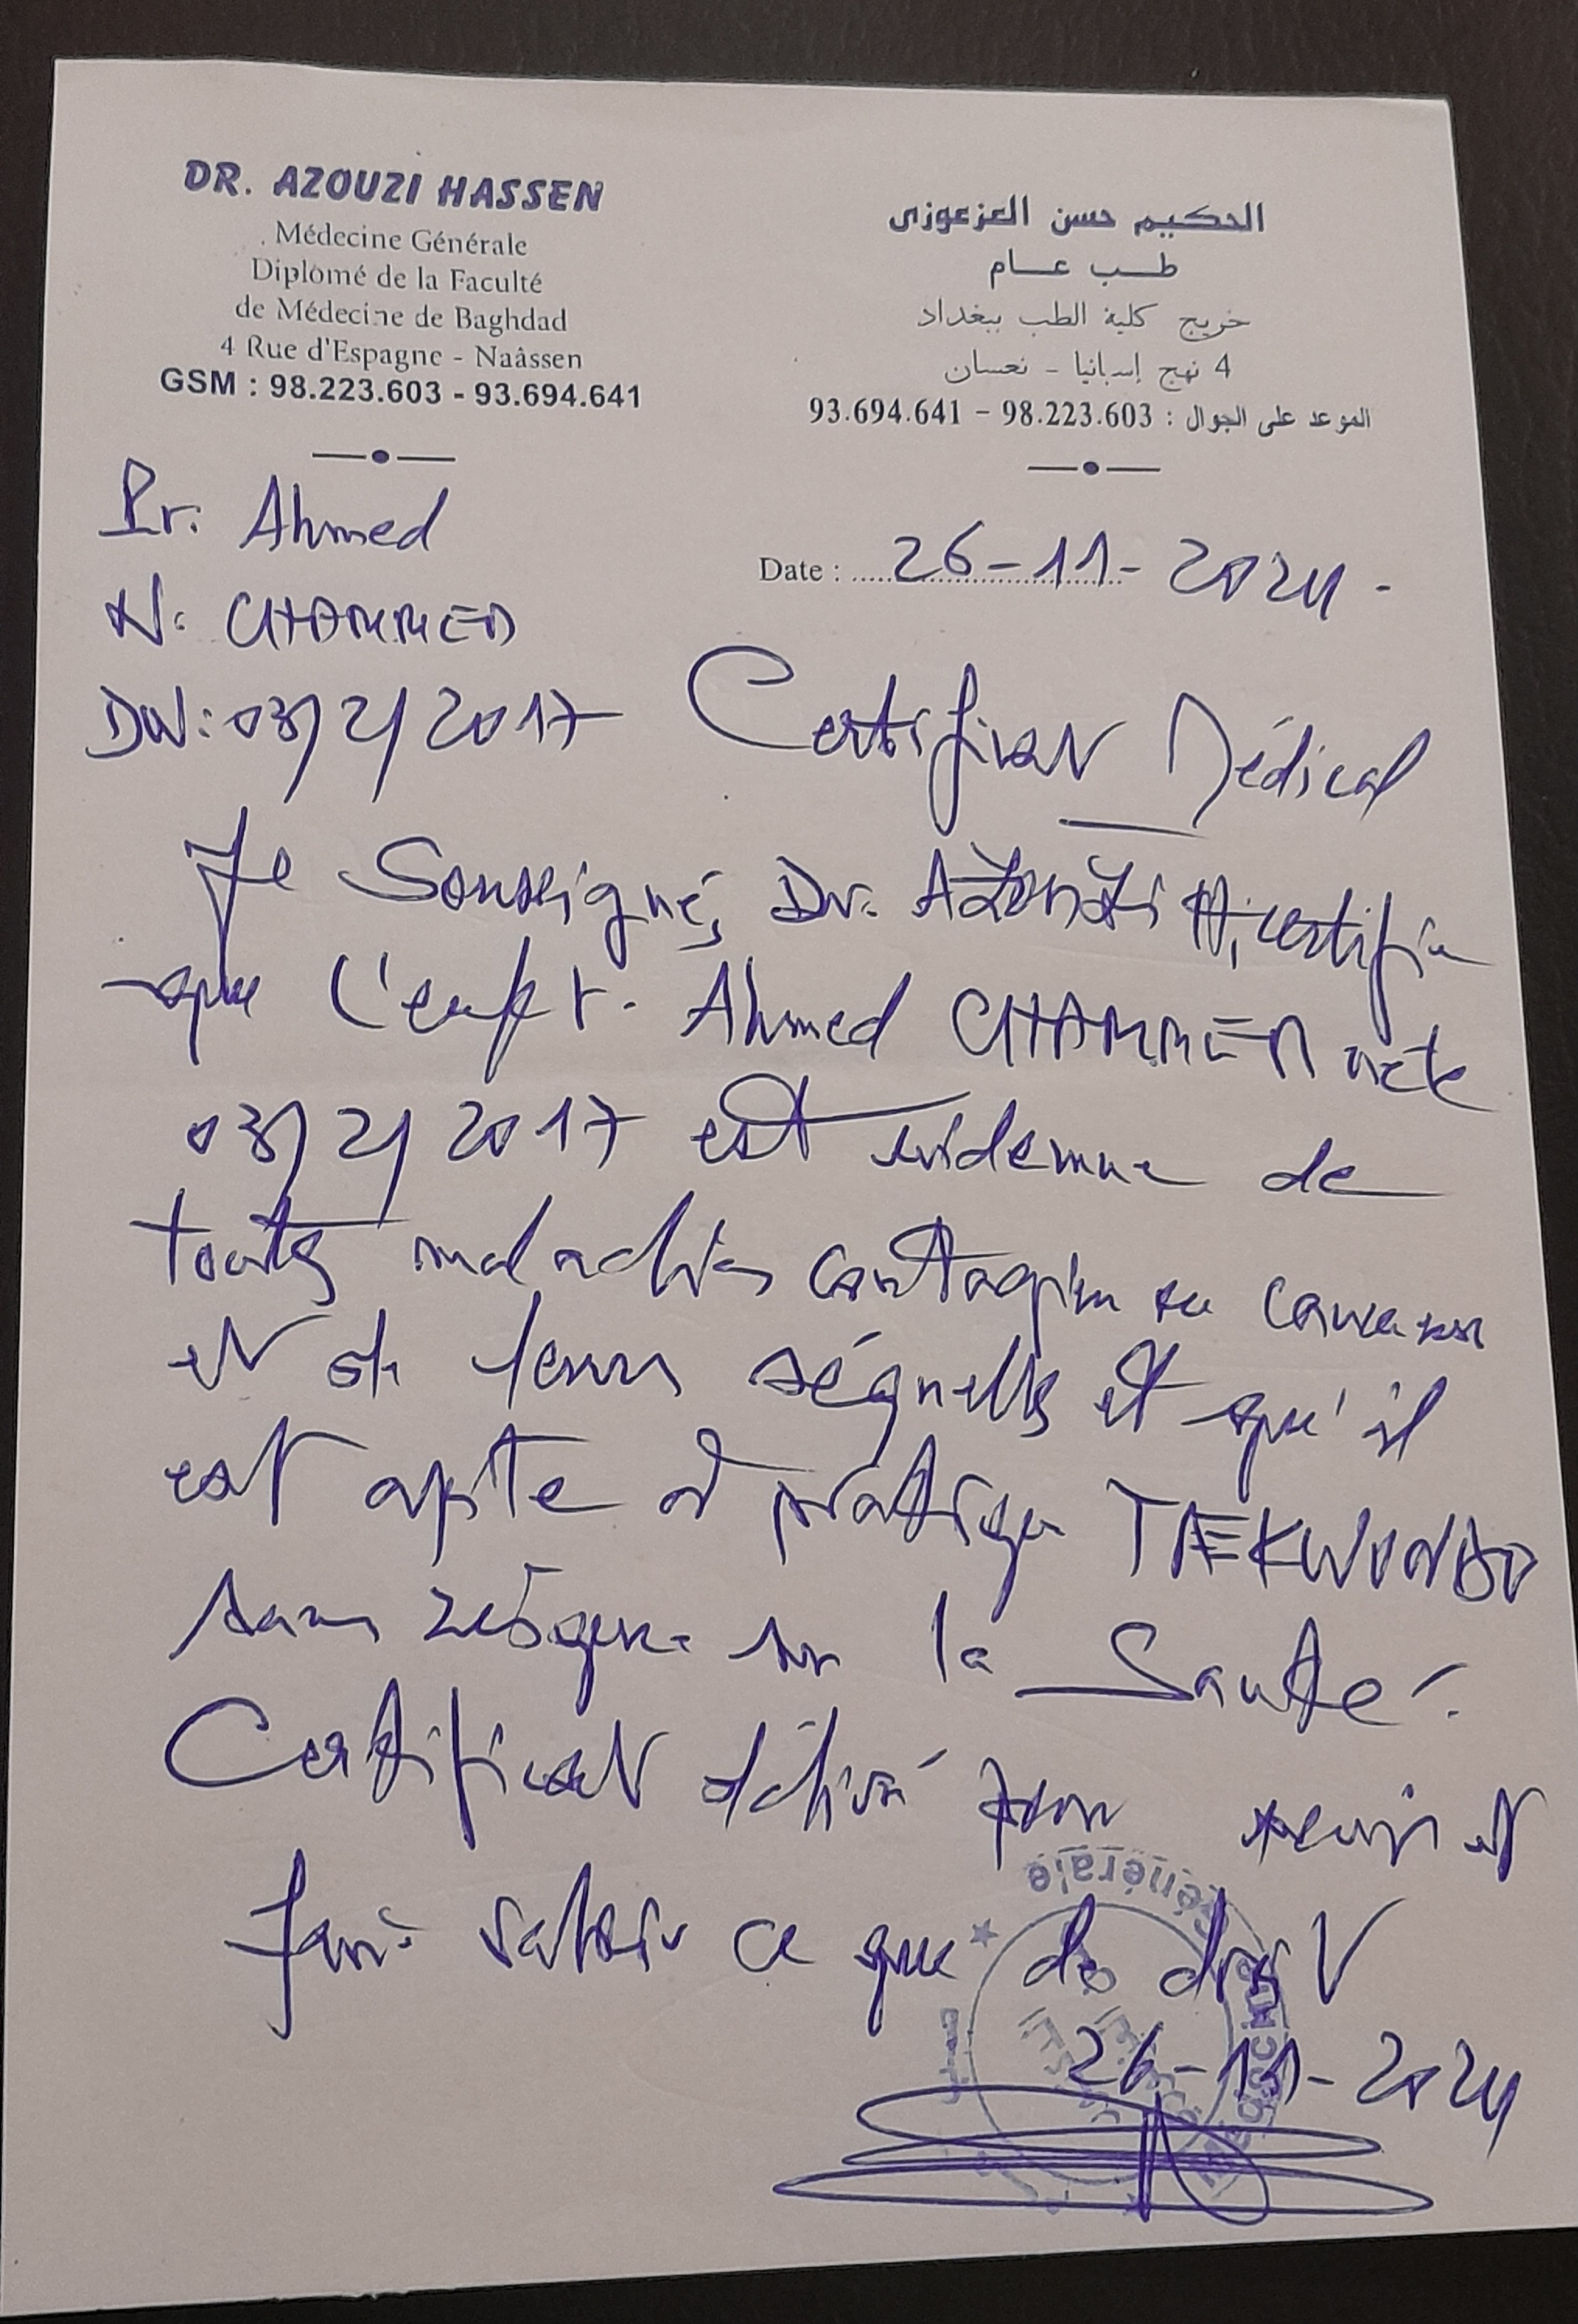 DR. AZOUZI HASSEN
Médecine Générale
Diplomé de la Faculté
de Médecine de Baghdad
4 Rue d'Espagne - Naâssen
GSM : 98.223.603 - 93.694.641
الحكيم حسن العزعوزي
طب عام
خريج كلية الطب ببغداد
4 نهج إسبانيا - نعسان
الموعد على الجوال : 98.223.603 - 93.694.641
Pr. Ahmed
N: CHAMMED
Date : 26-11-2024.
DN: 03/2/2017
Certificat Médical
Je Soussigné, Dr. AZOUZI H, certifie
que l'enft. Ahmed CHAMMED né le
03/2/2017 est indemne de
toutes maladies contagieuses
et de leurs séquelles et qu'il
est apte à pratiquer TAEKWONDO
sans sur la Santé.
Certificat délivré pour servir et
faire valoir ce que de droit
26-11-2024
Générale